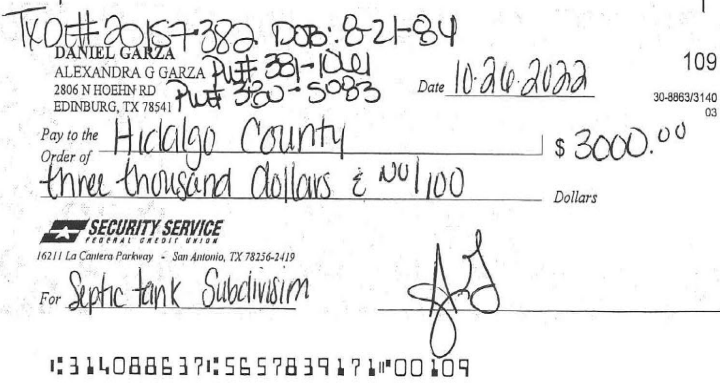 TXDL# 20157382 DOB: 8-21-84
DANIEL GARZA
ALEXANDRA G GARZA PH# 381-1061
2806 N HOEHN RD
EDINBURG, TX 78541 PH# 380-5083
Date 10-26-2022
109
30-8863/3140
03
Pay to the Order of Hidalgo County $ 3000.00
three thousand dollars & no/100 Dollars
SECURITY SERVICE
FEDERAL CREDIT UNION
16211 La Cantera Parkway - San Antonio, TX 78256-2419
For Septic tank Subdivision
⑆314088637⑆5657839171⑈00109